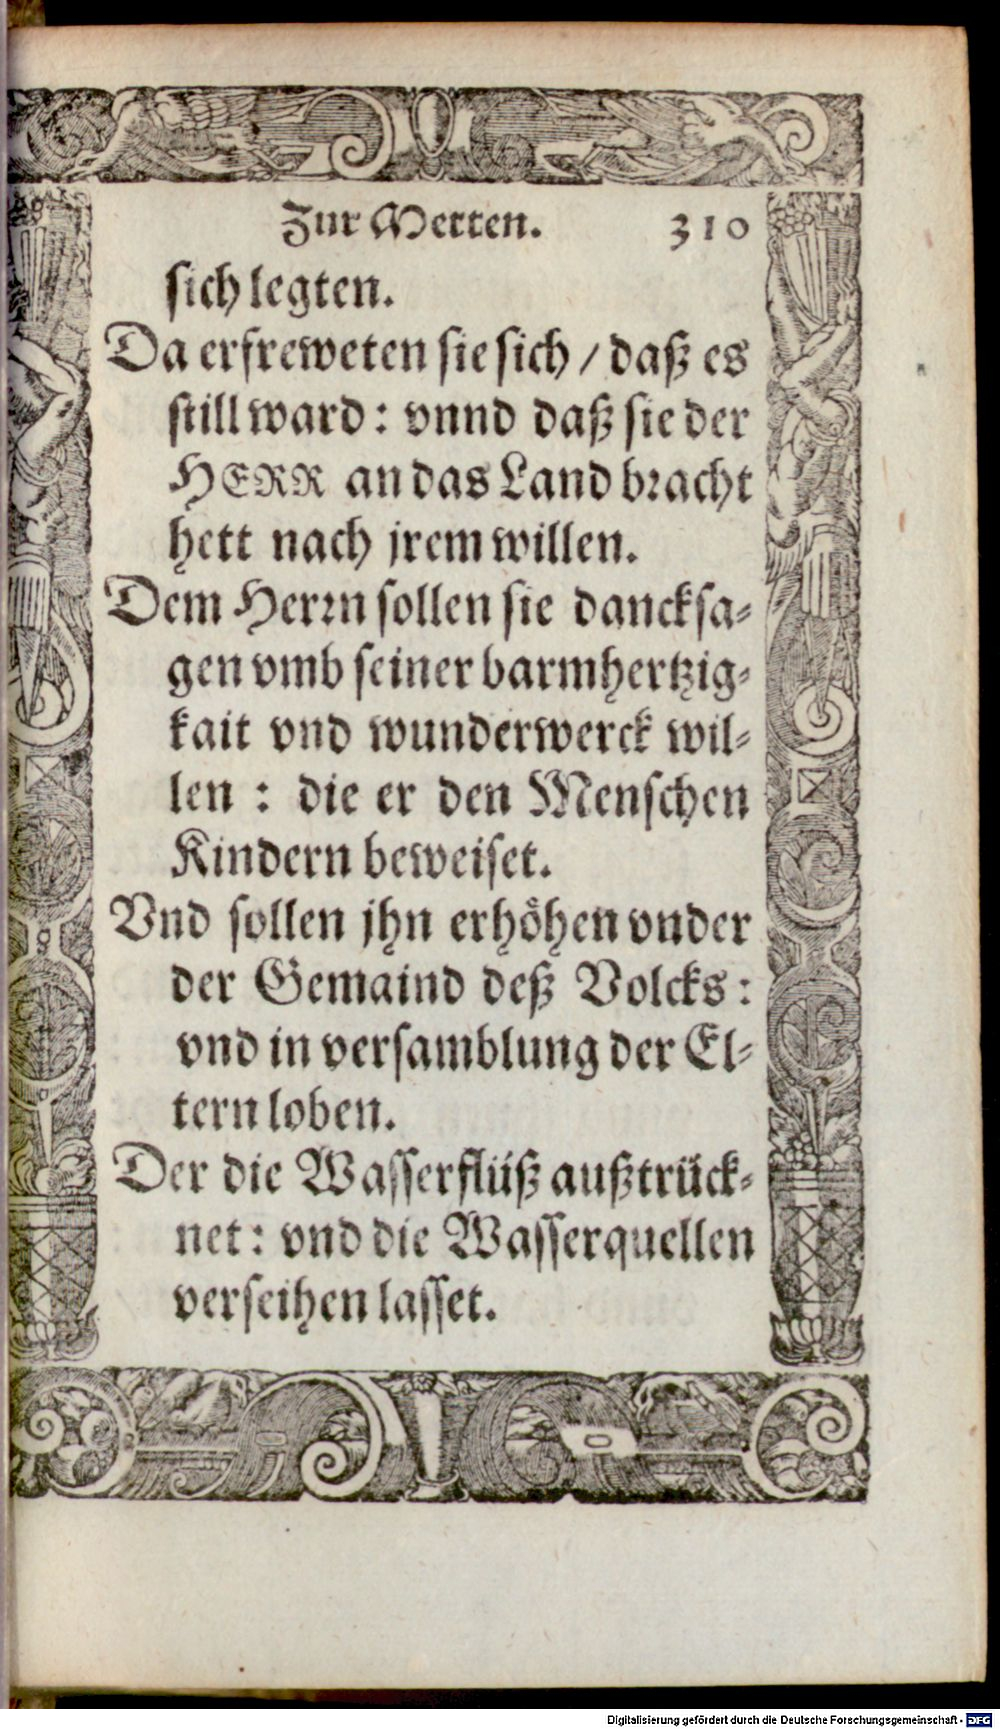 Zur Metten. 310
sich legten.
Da erfreweten sie sich / daß es
still ward : vnnd daß sie der
HERR an das Land bracht
hett nach jrem willen.
Dem Herrn sollen sie dancksa⸗
gen vmb seiner barmhertzig⸗
kait vnd wunderwerck wil⸗
len : die er den Menschen
Kindern beweiset.
Vnd sollen jhn erhöhen vnder
der Gemaind deß Volcks :
vnd in versamblung der El⸗
tern loben.
Der die Wasserflüß außtrück⸗
net : vnd die Wasserquellen
verseihen lasset.
Digitalisierung gefördert durch die Deutsche Forschungsgemeinschaft - DFG